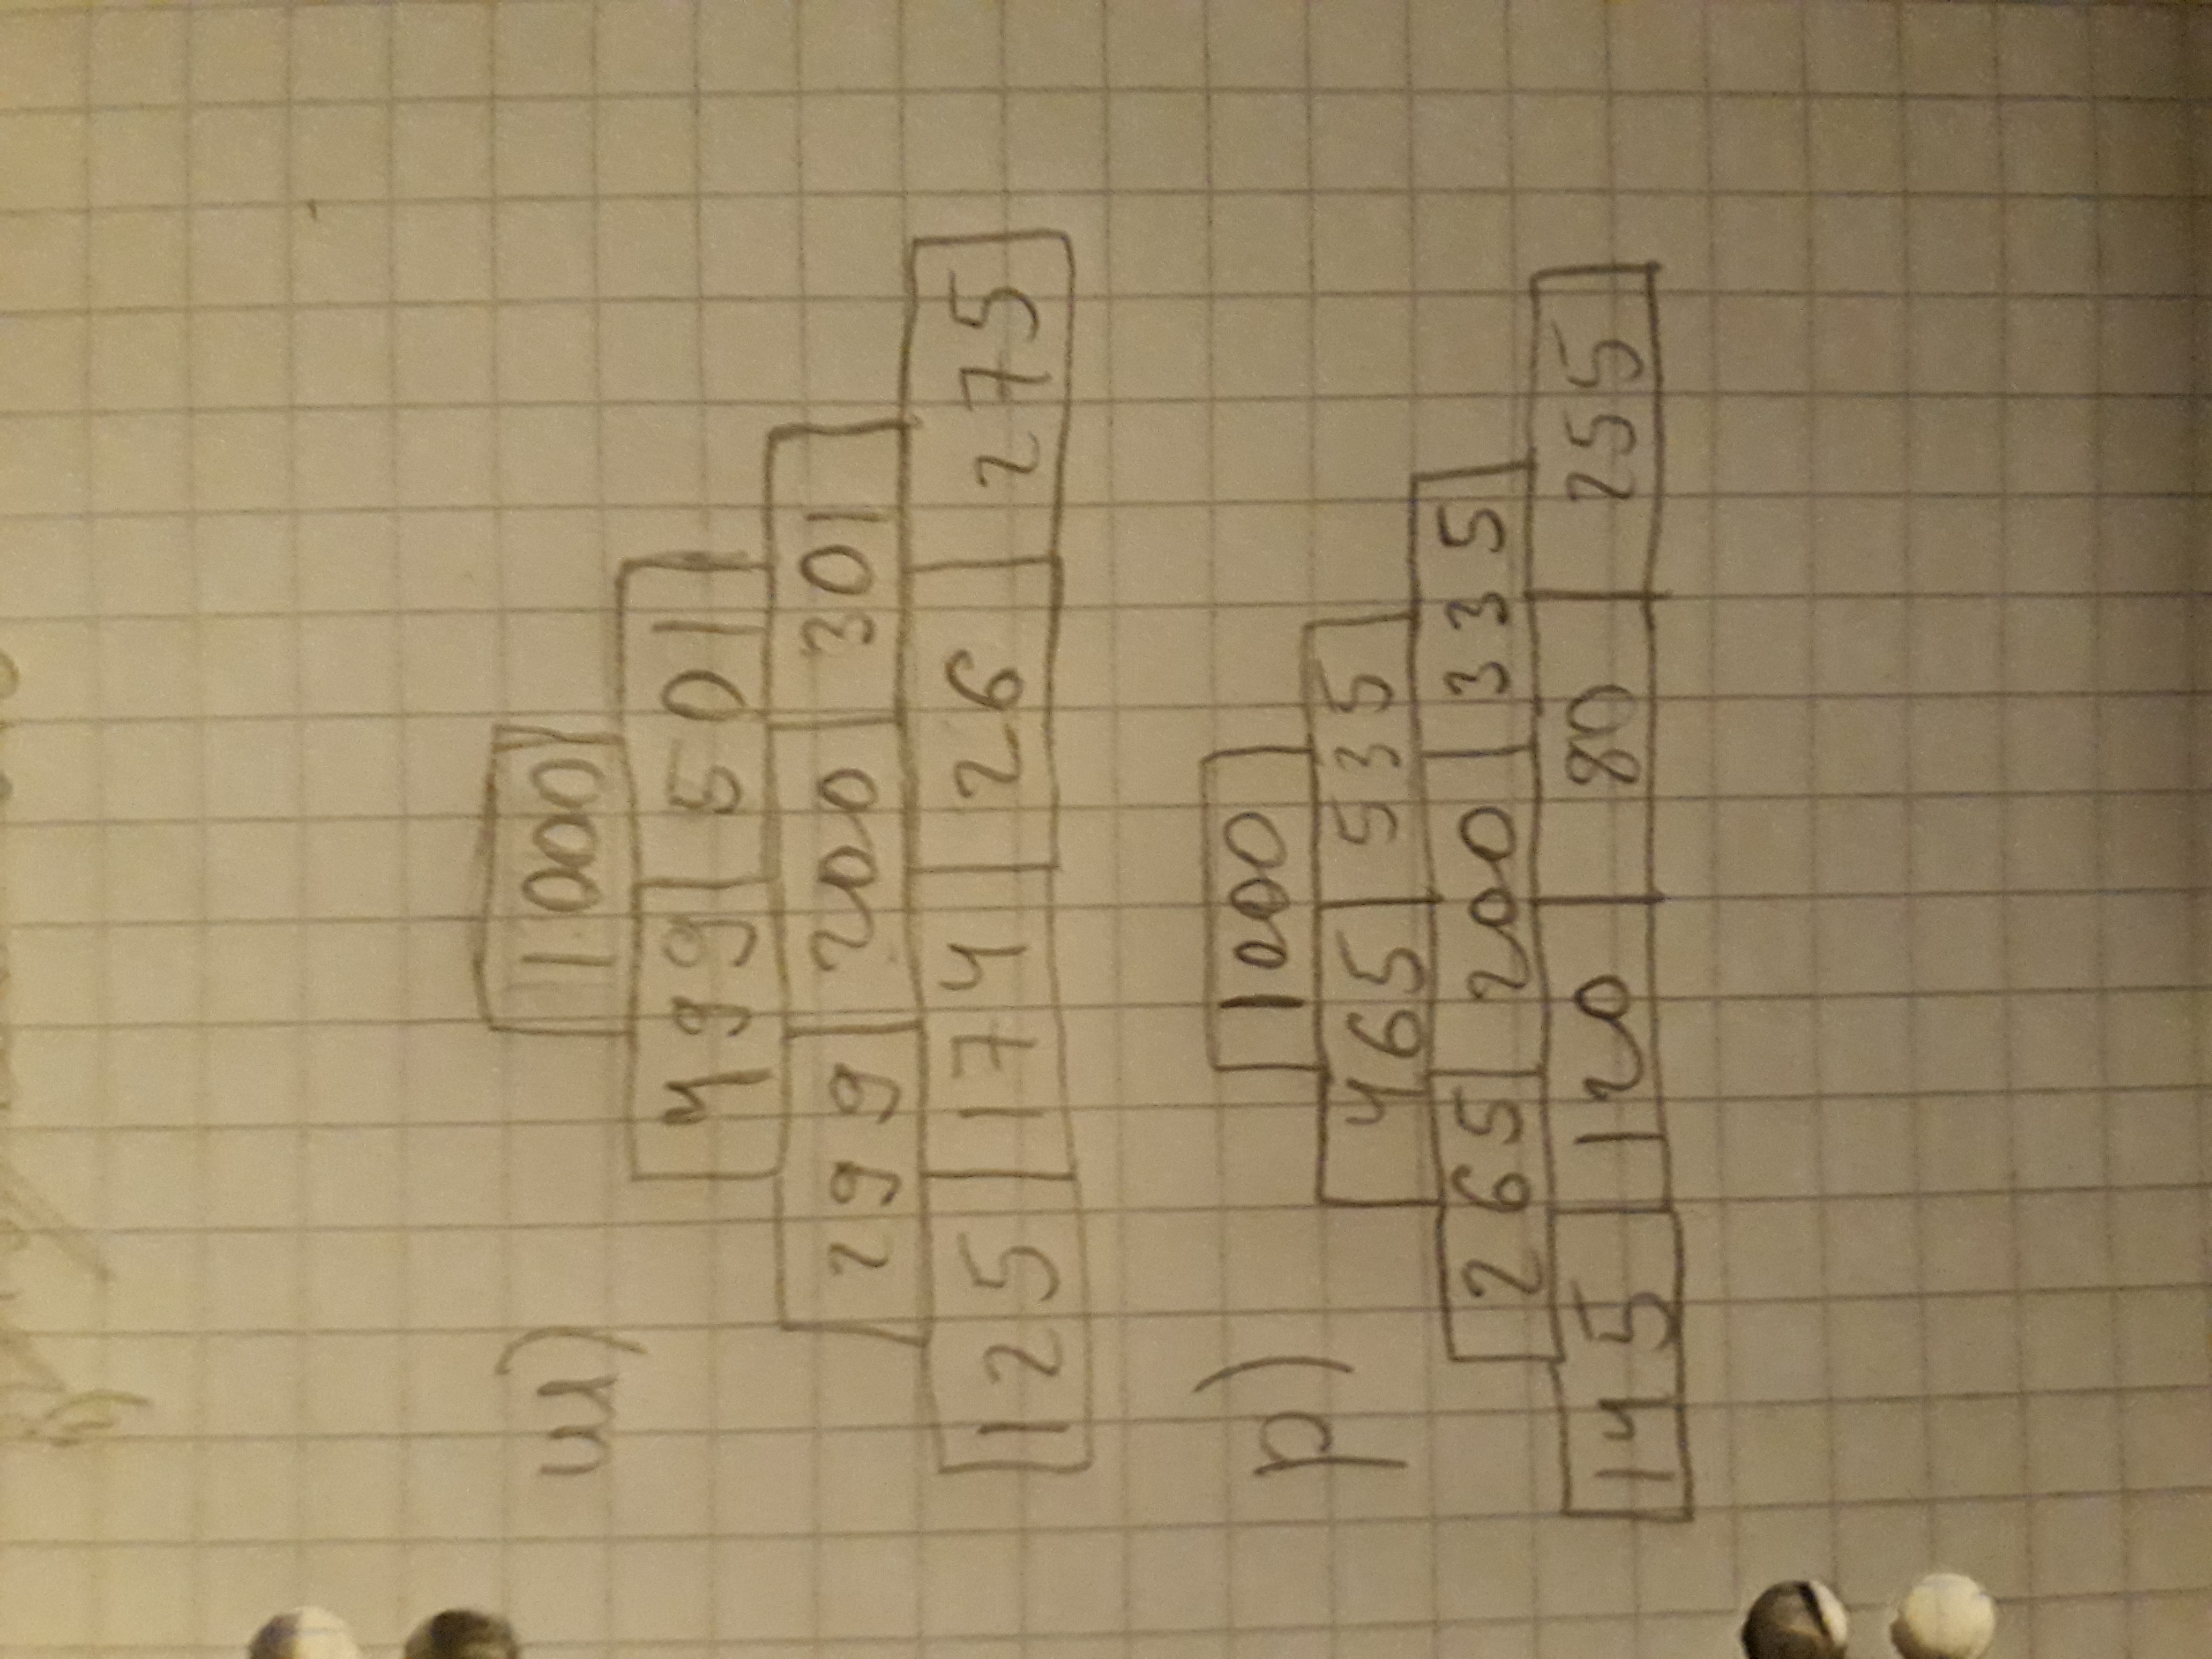 ш)
1000
499 501
299 200 301
125 174 26 275
р)
1000
465 535
265 200 335
145 120 80 255